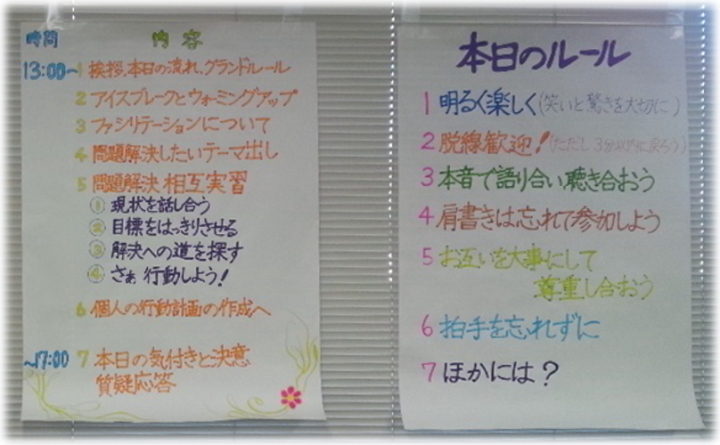 時間 内容
13:00~ 1 挨拶、本日の流れ、グランドルール
2 アイスブレークとウォーミングアップ
3 ファシリテーションについて
4 問題解決したいテーマ出し
5 問題解決 相互実習
① 現状を話し合う
② 目標をはっきりさせる
③ 解決への道を探す
④ さぁ 行動しよう!
6 個人の行動計画の作成へ
~17:00 7 本日の気付きと決意
質疑応答
本日のルール
1 明るく楽しく(笑いと驚きを大切に)
2 脱線歓迎!(ただし3分以内に戻ろう)
3 本音で語り合い聴き合おう
4 肩書きは忘れて参加しよう
5 お互いを大事にして
尊重し合おう
6 拍手を忘れずに
7 ほかには?